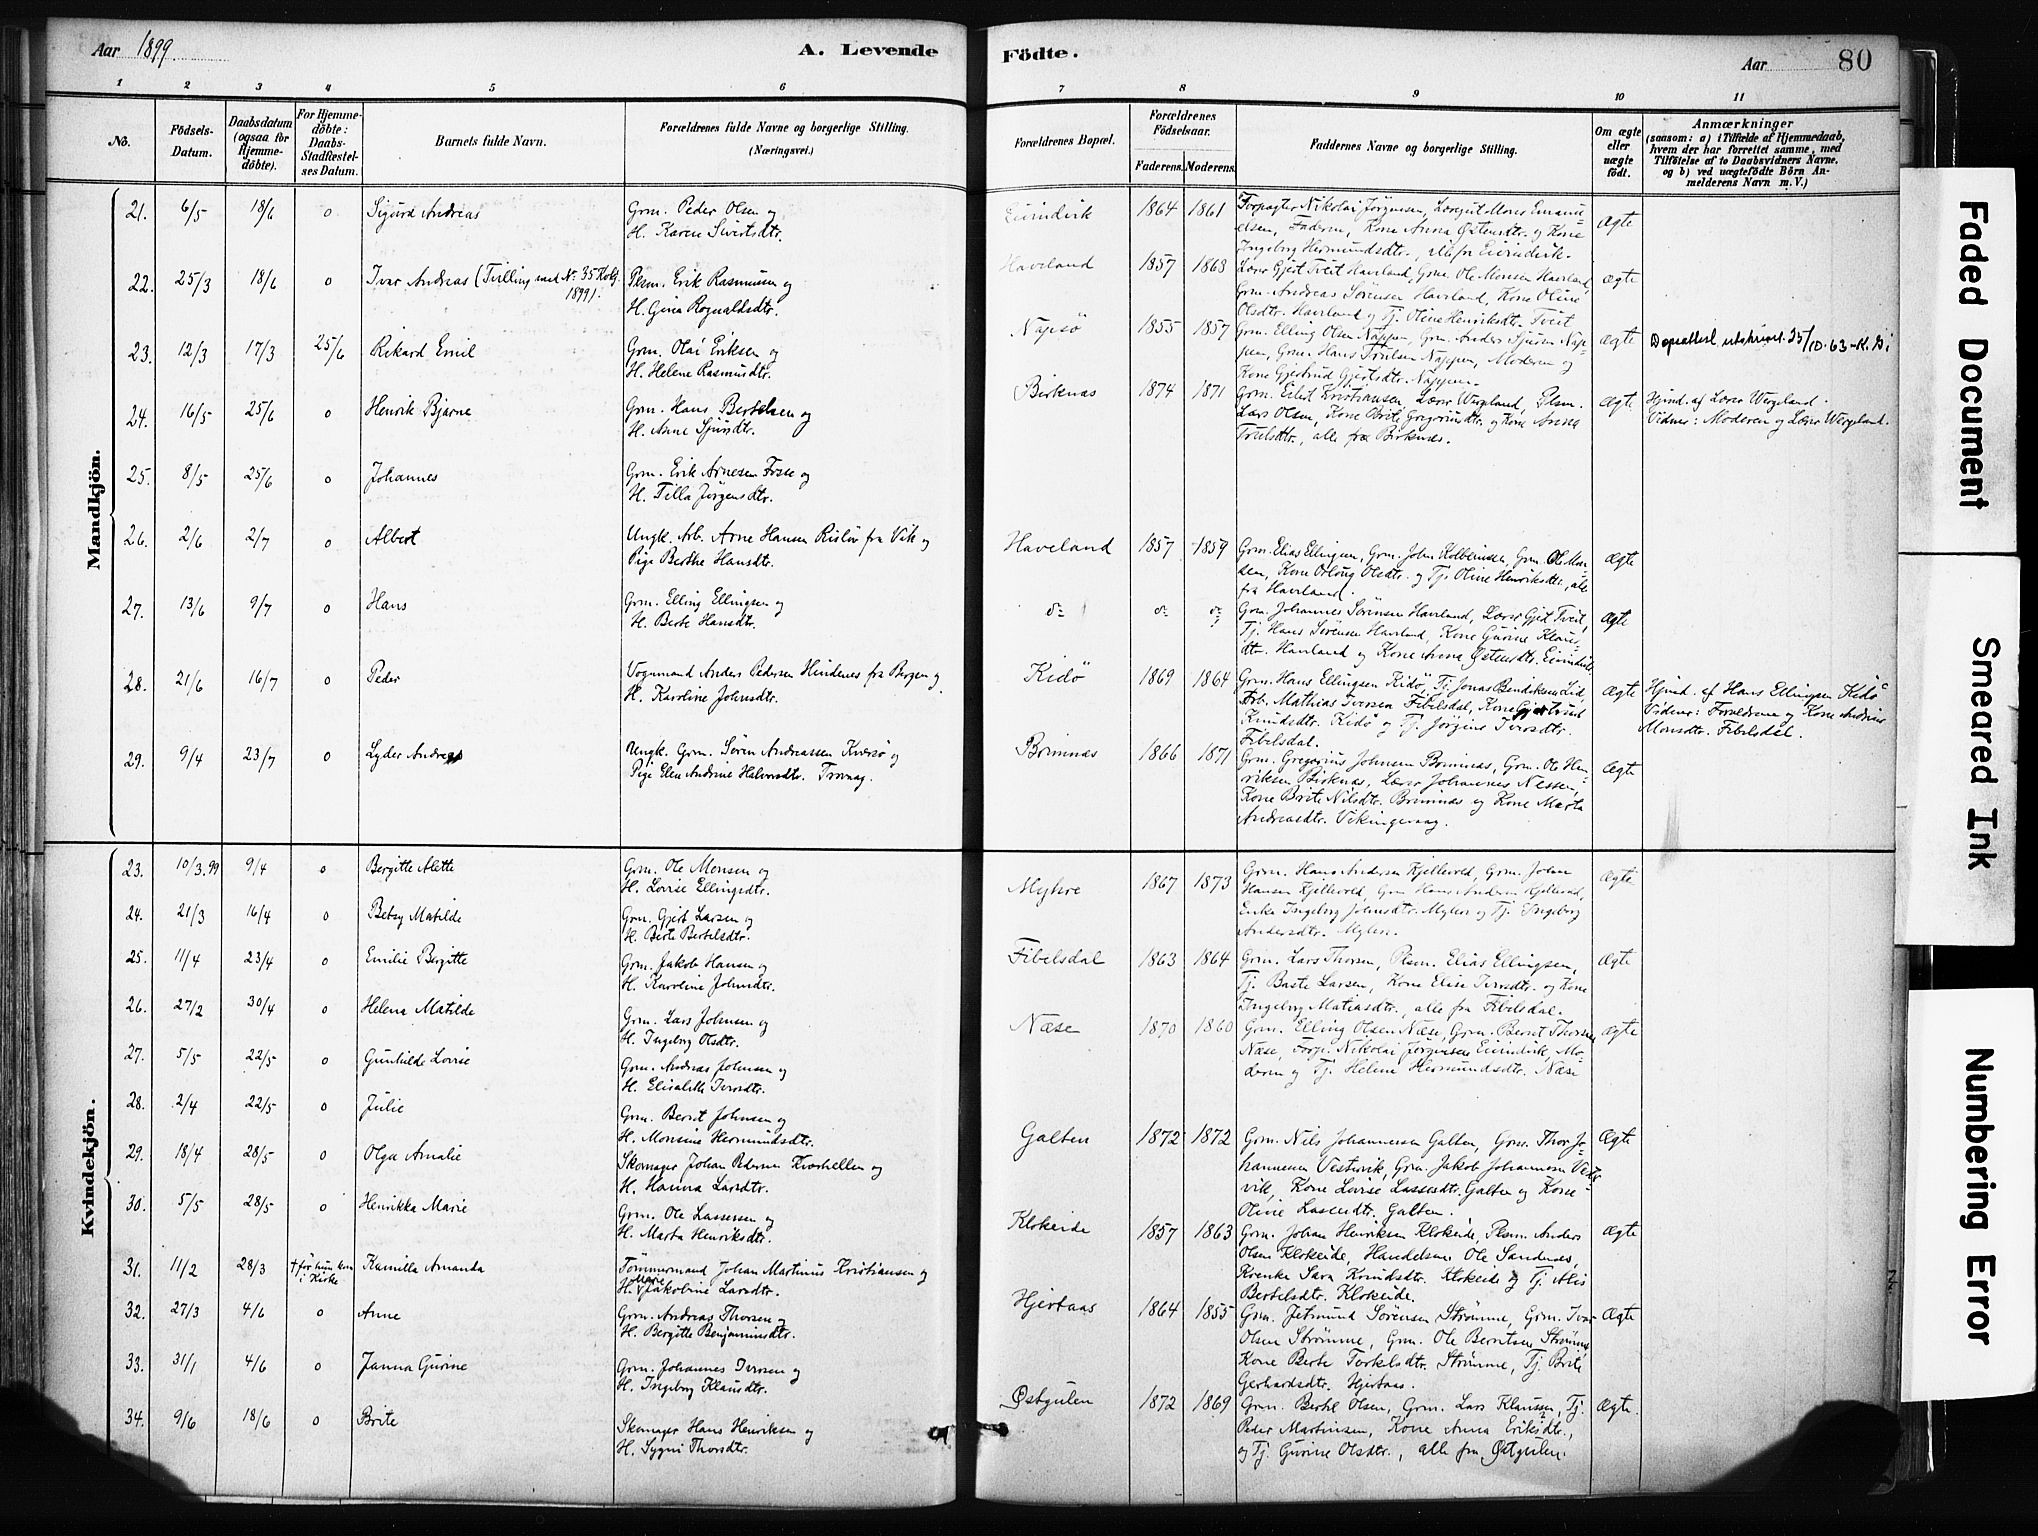 Aar 1899.
A. Levende
1 2 3 4 5 6
No.
Födsels-Datum.
Daabsdatum (ogsaa for Hjemme-döbte).
For Hjemme-döbte: Daabs-Stadfæstelses Datum.
Barnets fulde Navn.
Forældrenes fulde Navne og borgerlige Stilling. (Næringsvei.)
Mandkjön.
21. 6/5 18/6 o Sigurd Andreas Grm. Peder Olsen og
H. Karen Sivertsdtr.
22. 25/3 18/6 o Ivar Andreas (Tvilling med No. 35 Kvkj. Plsm. Erik Rasmussen og
1899). H. Gina Rognaldsdtr.
23. 12/3 17/3 25/6 Rikard Emil Grm. Olai Eriksen og
H. Helene Rasmusdtr.
24. 16/5 25/6 o Henrik Bjarne Grm. Hans Bertelsen og
H. Anne Sjursdtr.
25. 8/5 25/6 o Johannes Grm. Erik Arnesen Fosse og
H. Tilla Jørgensdtr.
26. 2/6 2/7 o Albert Ungk. Arb. Arne Hansen Risløv fra Vik og
Pige Berthe Hansdtr.
27. 13/6 9/7 o Hans Grm. Elling Ellingsen og
H. Berte Hansdtr.
28. 21/6 16/7 o Peder Vognmand Anders Pedersen Hindenes fra Bergen og
H. Karoline Johnsdtr.
29. 9/4 23/7 o Lyder Andreas Ungk. Grm. Søren Andreassen Kversø og
Pige Elen Andrine Halvorsdtr.
Kvindekjön.
23. 10/3.99 9/4 o Bergitte Alette Grm. Ole Monsen og
H. Lovise Ellingsdtr.
24. 21/3 16/4 o Betsy Matilde Grm. Gjert Larsen og
H. Berte Bertelsdtr.
25. 11/4 23/4 o Emilie Bergitte Grm. Jakob Hansen og
H. Karoline Johnsdtr.
26. 27/2 30/4 o Helena Matilde Grm. Lars Johnsen og
H. Ingeborg Olsdtr.
27. 5/5 22/5 o Gunhilde Lovise Grm. Andreas Johnsen og
H. Elisabeth Iversdtr.
28. 2/4 22/5 o Julie Grm. Bernt Johnsen og
H. Monsine Hermundsdtr.
29. 18/4 28/5 o Olga Amalie Skomager Johan Pedersen Kvarhellen og
H. Hanna Larsdtr.
30. 5/5 28/5 o Henrikka Marie Grm. Ole Lassesen og
H. Marta Henriksdtr.
31. 11/2 28/3 † før hun kom i Kirke Kamilla Amanda Tømmermand Johan Martinus Kristiansen og
H. Marie Jakobine Larsdtr.
32. 27/3 4/6 o Anne Grm. Andreas Thorsen og
H. Bergitte Benjaminsdtr.
33. 31/1 4/6 o Janna Gurine Grm. Johannes Iversen og
H. Ingeborg Klausdtr.
34. 9/6 18/6 o Brite Skomager Hans Henriksen og
H. Sygni Thorsdtr.
Födte.
Aar 80
7 8 9 10 11
Forældrenes Bopæl.
Forældrenes Födselsaar.
Faderens. Moderens.
Faddernes Navne og borgerlige Stilling.
Om ægte eller uægte födt.
Anmærkninger
(saasom: a) i Tilfælde af Hjemmedaab,
hvem der har forrettet samme, med
Tilföielse af to Daabsvidners Navne,
og b) ved uægtefödte Börn An-
melderens Navn m. V.)
Eivindvik 1864 1861 Forpagter Nikolai Jørgensen, Læregut Mons Emanu-
elsen, Faderen, Kone Anna Østensdtr. og Kone
Ingeborg Hermundsdtr., alle fra Eivindvik. Ægte
Haveland 1857 1863 Lærer Gjert Tveit Haveland, Grm. Ole Monsen Haveland,
Grm. Andreas Sørensen Haveland, Kone Oline
Olsdtr. Haveland og Tj. Oline Henriksdtr. Tveit Ægte
Napsø 1855 1857 Grm. Elling Olsen Nappen, Grm. Anders Sjursen Nap-
pen, Grm. Hans Troelsen Nappen, Moderen og
Kone Gjertrud Gjertsdtr. Nappen. Ægte Dåpsattest utskrevet 25/10.63-K.G.
Birknæs 1874 1871 Grm. Eilert Kristiansen, Lærer Wergeland, Plsm.
Lars Olsen, Kone Brite Gregoriusdtr. og Kone Anna
Troelsdtr., alle fra Birknæs. Ægte Hjmd. af Lærer Wergeland.
Vidner: Moderen og Lærer Wergeland.
Haveland 1857 1859 Grm. Elias Ellingsen, Grm. John Kolbeinsen, Grm. Ole Mon-
sen, Kone Olsdtr. og Tj. Oline Henriksdtr., alle
fra Haveland. Ægte
do do do Grm. Johannes Sørensen Haveland, Lærer Gjert Tveit,
Tj. Hans Sørensen Haveland, Kone Gurine Klaus-
dtr. Haveland og Kone Anna Østensdtr. Eivindvik Ægte
Kidø 1869 1864 Grm. Hans Ellingsen Kidø, Tj. Jonas Bendiksen Lid,
Arb. Mathias Iversen Fibelsdal, Kone Gjertrud
Knudsdtr. Kidø og Tj. Jørgine Iversdtr.
Fibelsdal. Ægte Hjmd. af Hans Ellingsen Kidø
Vidner: Forældrene og Kone Andrine
Monsdtr. Fibelsdal.
Brimnæs 1866 1871 Grm. Gregorius Johnsen Brimnæs, Grm. Ole Hen-
riksen Birknæs, Lærer Johannes Nessen,
Kone Brite Nilsdtr. Brimnæs og Kone Marta
Andreasdtr. Vikingevaag. Ægte
Myhre 1867 1873 Grm. Hans Andersen Kjellevold, Grm. Johan
Hansen Kjellevold, Grm Hans Andersen Kjellevold,
Enke Ingeborg Johnsdtr. Myhre og Tj. Ingeborg
Andersdtr. Myhre. Ægte
Fibelsdal 1863 1864 Grm. Lars Thorsen, Plsm. Elias Ellingsen,
Tj. Baste Larsen, Kone Elise Iversdtr. og Kone
Ingeborg Matiasdtr., alle fra Fibelsdal. Ægte
Næse 1870 1860 Grm. Elling Olsen Næse, Grm. Bernt Thorsen
Næse, Forp. Nikolai Jørgensen Eivindvik, Mo-
deren og Tj. Helene Hermundsdtr. Næse Ægte
Galten 1872 1872 Grm. Nils Johannessen Galten, Grm. Thor Jo-
hannessen Vestervik, Grm. Jakob Johannessen Vester-
vik, Kone Lovise Lassesdtr. Galten og Kone
Oline Lassesdtr. Galten. Ægte
Klokeide 1857 1863 Grm. Johan Henriksen Klokeide, Plsm. Anders
Olsen Klokeide, Handelsm. Ole Sandenæs,
Kvenke Sara Knudsdtr. Klokeide og Tj. Alis
Bertelsdtr. Klokeide. Ægte
Hjertaas 1864 1855 Grm. Jetmund Sørensen Strømme, Grm. Ivar
Olsen Strømme, Grm. Ole Berntsen Strømme
Kone Berte Torkelsdtr. Strømme, Tj. Brite
Gerhardsdtr. Hjertaas. Ægte
Østgulen 1872 1869 Grm. Bertel Olsen, Grm. Lars Klausen, Tj.
Peder Martinsen, Kone Anna Eriksdtr.,
og Tj. Gurine Olsdtr., alle fra Østgulen. Ægte.
Faded Document
Smeared Ink
Numbering Error